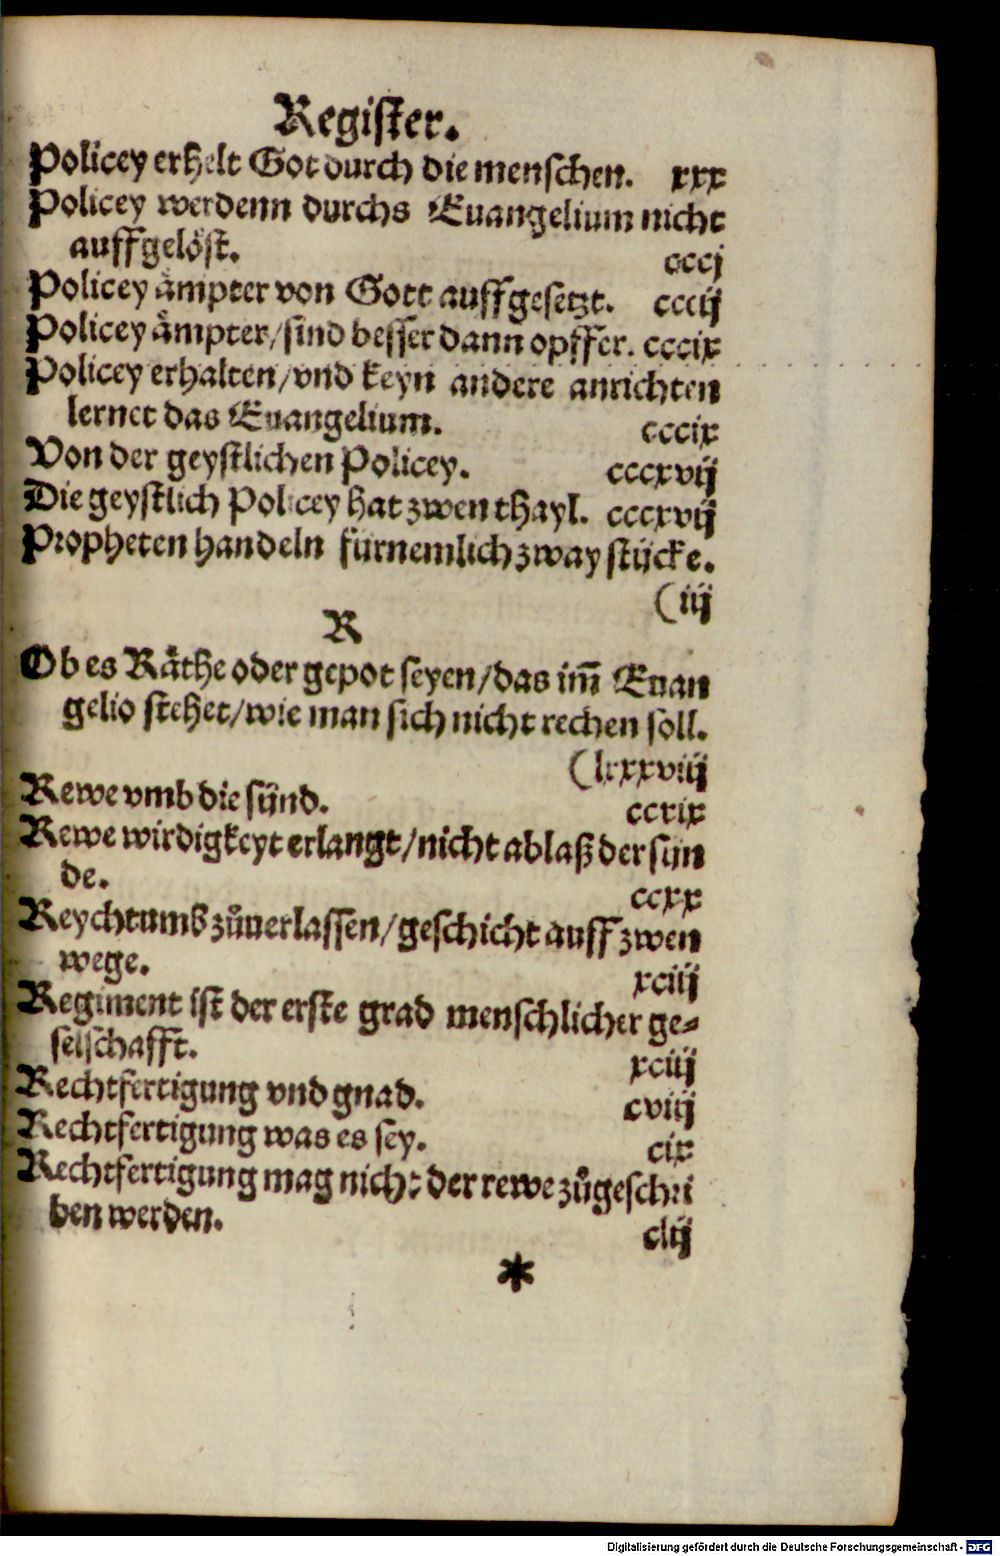 Register.
Policey erhelt Got durch die menschen. xxx
Policey werdenn durchs Euangelium nicht
auffgelöst. cccj
Policey ämpter von Gott auffgesetzt. cccij
Policey ämpter/sind besser dann opffer. cccix
Policey erhalten/vnd keyn andere anrichten
lernet das Euangelium. cccix
Von der geystlichen Policey. cccxvij
Die geystlich Policey hat zwen thayl. cccxvij
Propheten handeln fürnemlich zway stücke.
(iij
R
Ob es Räthe oder gepot seyen/das im̃ Euan
gelio stehet/wie man sich nicht rechen soll.
(lxxxviij
Rewe vmb die sünd. ccxix
Rewe wirdigkeyt erlangt/nicht ablaß der sün
de. ccxx
Reychtumb zůuerlassen/geschicht auff zwen
wege. xciij
Regiment ist der erste grad menschlicher ge⸗
selschafft. xciij
Rechtfertigung vnd gnad. cviij
Rechtfertigung was es sey. cix
Rechtfertigung mag nicht der rewe zůgeschri
ben werden. clij
*
Digitalisierung gefördert durch die Deutsche Forschungsgemeinschaft - DFG